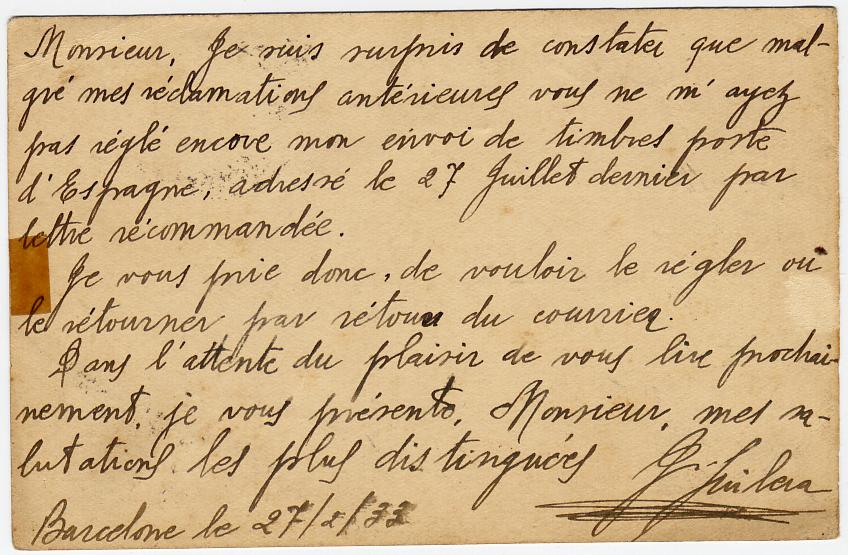 Monsieur, Je suis surpris de constater que mal-
gré mes réclamations antérieures vous ne m'ayez
pas réglé encore mon envoi de timbres poste
d'Espagne, adressé le 27 Juillet dernier par
lettre récommandée.
Je vous prie donc, de vouloir le régler ou
le rétourner par rétour du courrier.
Dans l'attente du plaisir de vous lire prochai-
nement, je vous présente, Monsieur, mes sa-
lutations les plus distinguées
Barcelone le 27/2/33